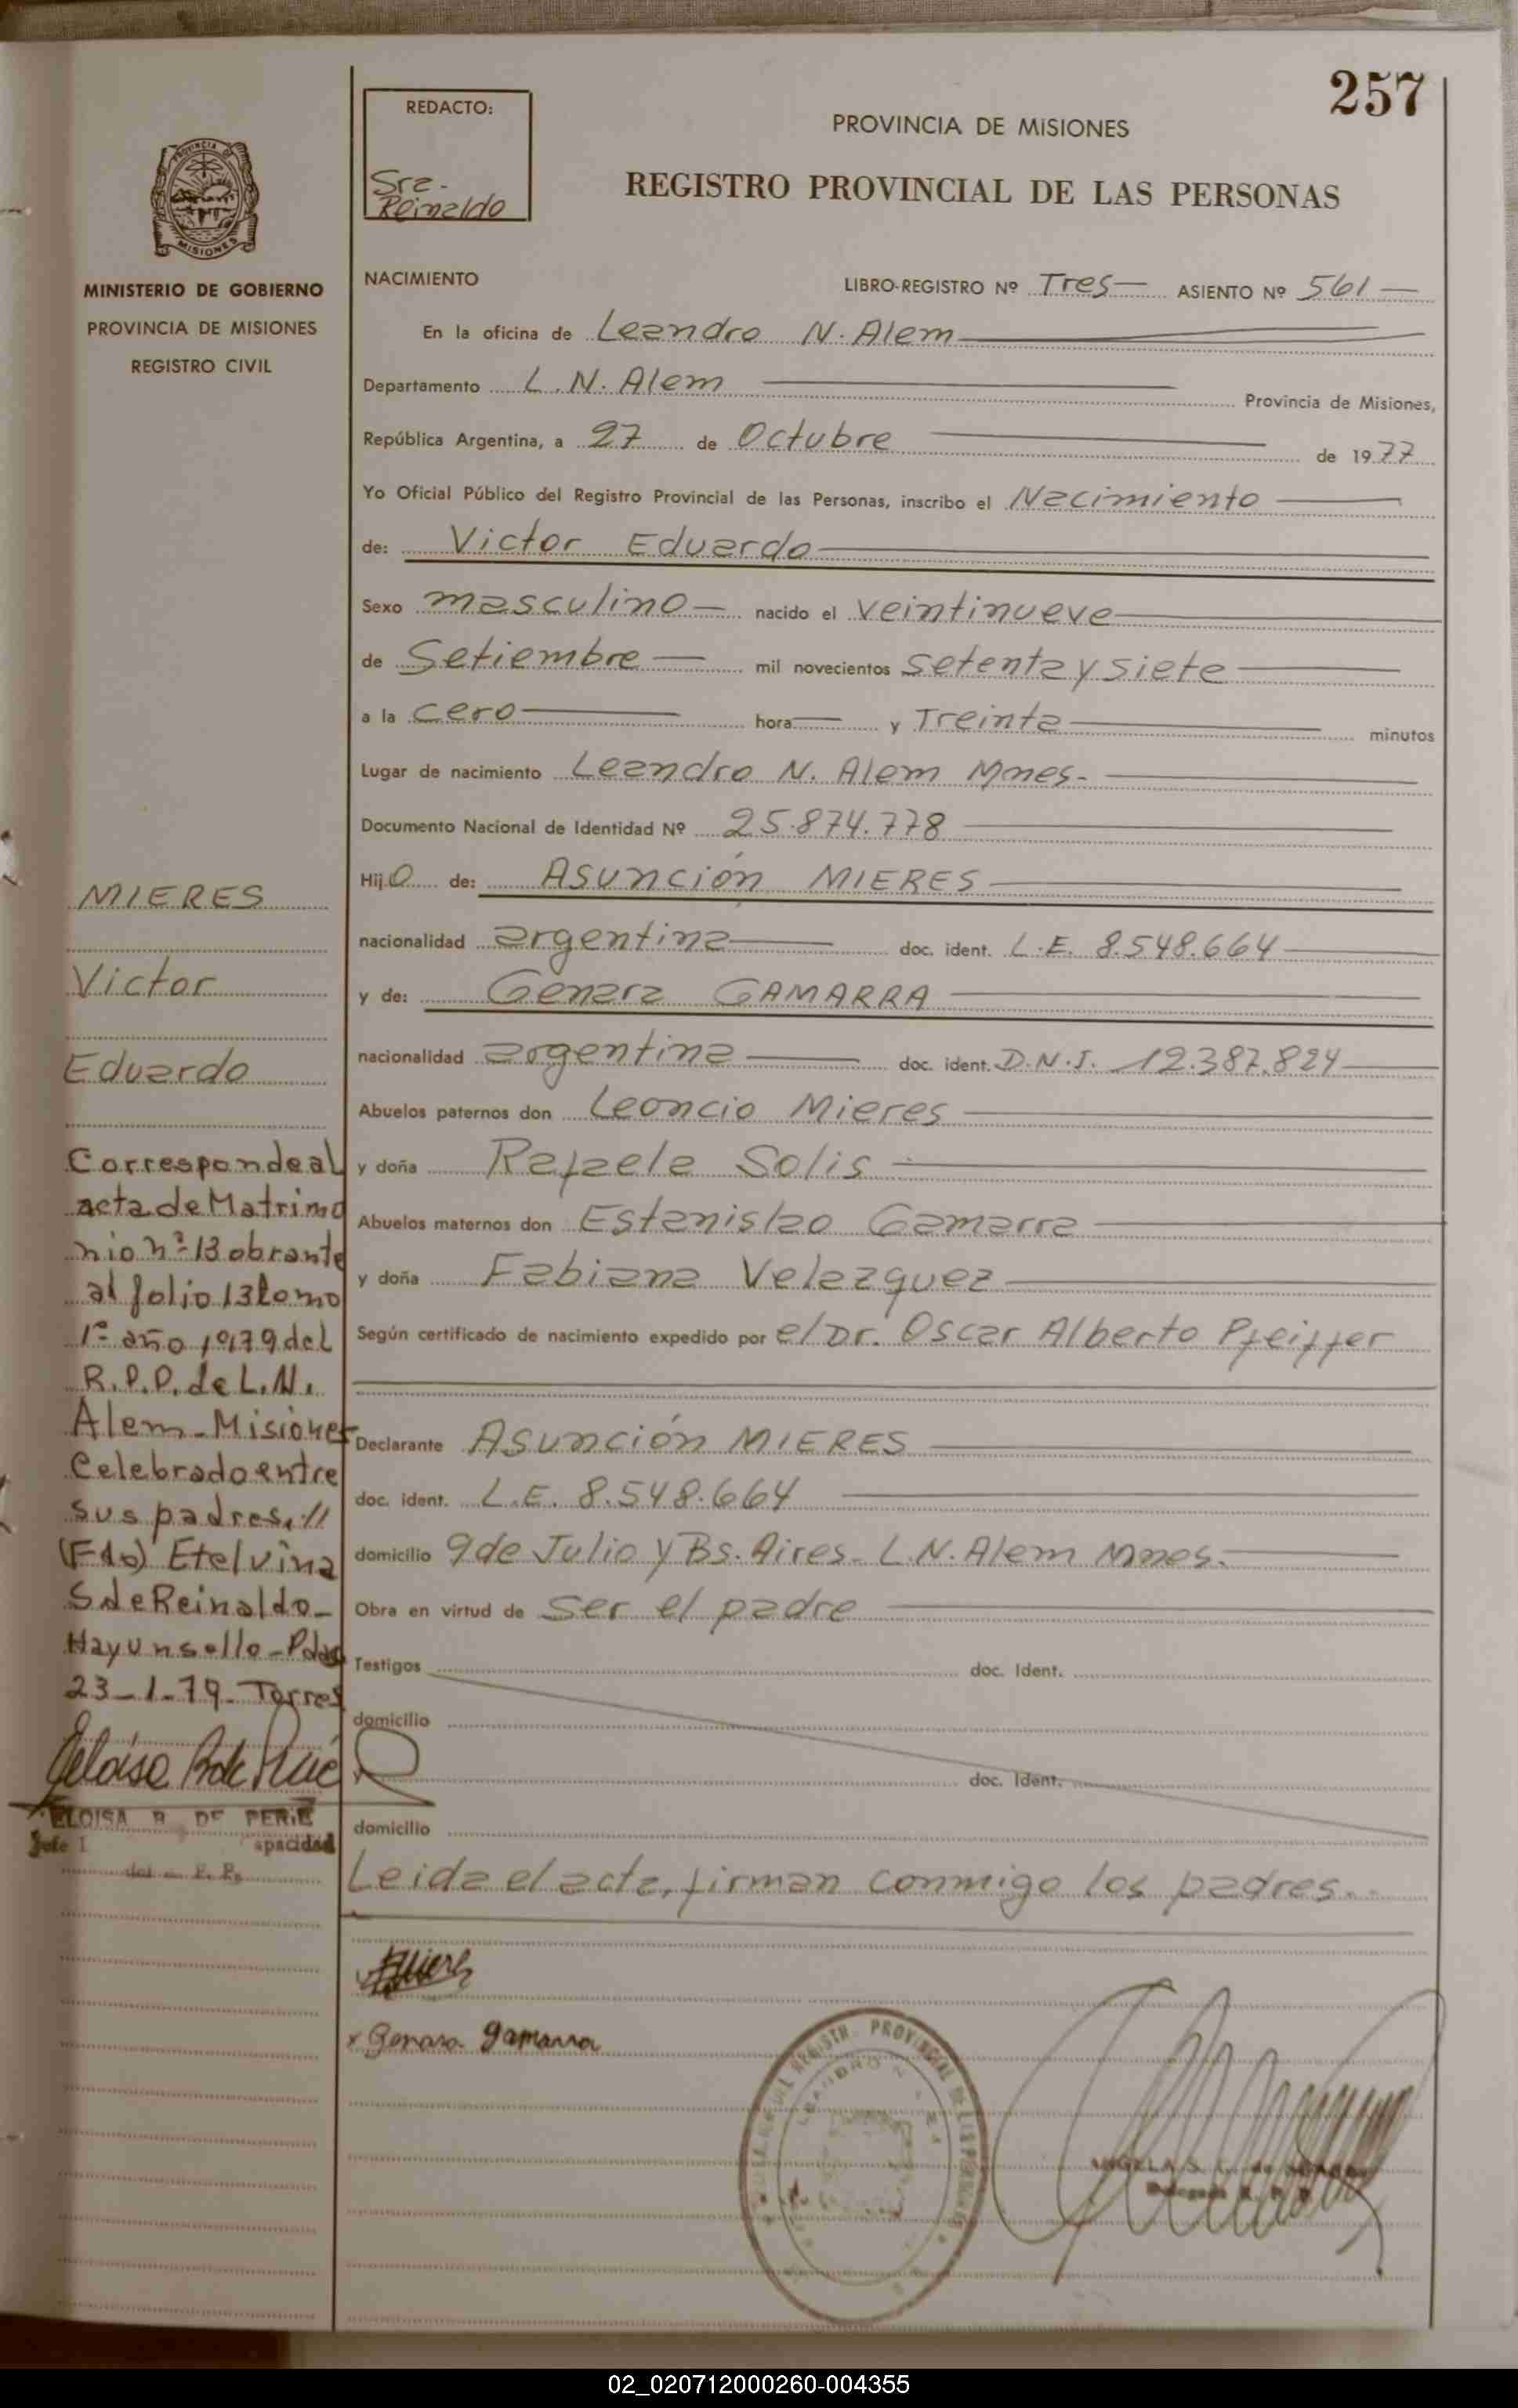 257
REDACTO:
Sra.
Reinaldo
PROVINCIA DE MISIONES
REGISTRO PROVINCIAL DE LAS PERSONAS
PROVINCIA DE
MISIONES
MINISTERIO DE GOBIERNO
PROVINCIA DE MISIONES
REGISTRO CIVIL
NACIMIENTO
LIBRO-REGISTRO Nº Tres ASIENTO Nº 561
En la oficina de Leandro N. Alem
Departamento L.N. Alem Provincia de Misiones,
República Argentina, a 27 de Octubre de 1977
Yo Oficial Público del Registro Provincial de las Personas, inscribo el Nacimiento
de: Victor Eduardo
Sexo masculino nacido el veintinueve
de Setiembre mil novecientos setenta y siete
a la cero hora y Treinta minutos
Lugar de nacimiento Leandro N. Alem Mnes.
Documento Nacional de Identidad Nº 25.874.778
Hijo de: Asunción MIERES
nacionalidad argentina doc. ident. L.E. 8.548.664
y de: Genara GAMARRA
nacionalidad argentina doc. ident. D.N.I. 12.387.824
Abuelos paternos don Leoncio Mieres
y doña Rafaela Solis
Abuelos maternos don Estanislao Gamarra
y doña Fabiana Velazquez
Según certificado de nacimiento expedido por el Dr. Oscar Alberto Pfeiffer
Declarante Asunción MIERES
doc. ident. L.E. 8.548.664
domicilio 9 de Julio y Bs. Aires. L.N. Alem Mnes.
Obra en virtud de ser el padre
Testigos doc. Ident.
domicilio
doc. Ident.
domicilio
Leida el acta, firman conmigo los padres.
Genara Gamarra
MIERES
Victor
Eduardo
Corresponde al
acta de Matrimo
nio nº 13 obrante
al folio 13 tomo
1º año 1979 del
R.P.P. de L.N.
Alem - Misiones
Celebrado entre
sus padres.//
(Fdo) Etelvina
S de Reinaldo -
Hay un sello - Pdas
23-1-79 - Torres
ELOISA B DE PERIE
Jefe
apacidad